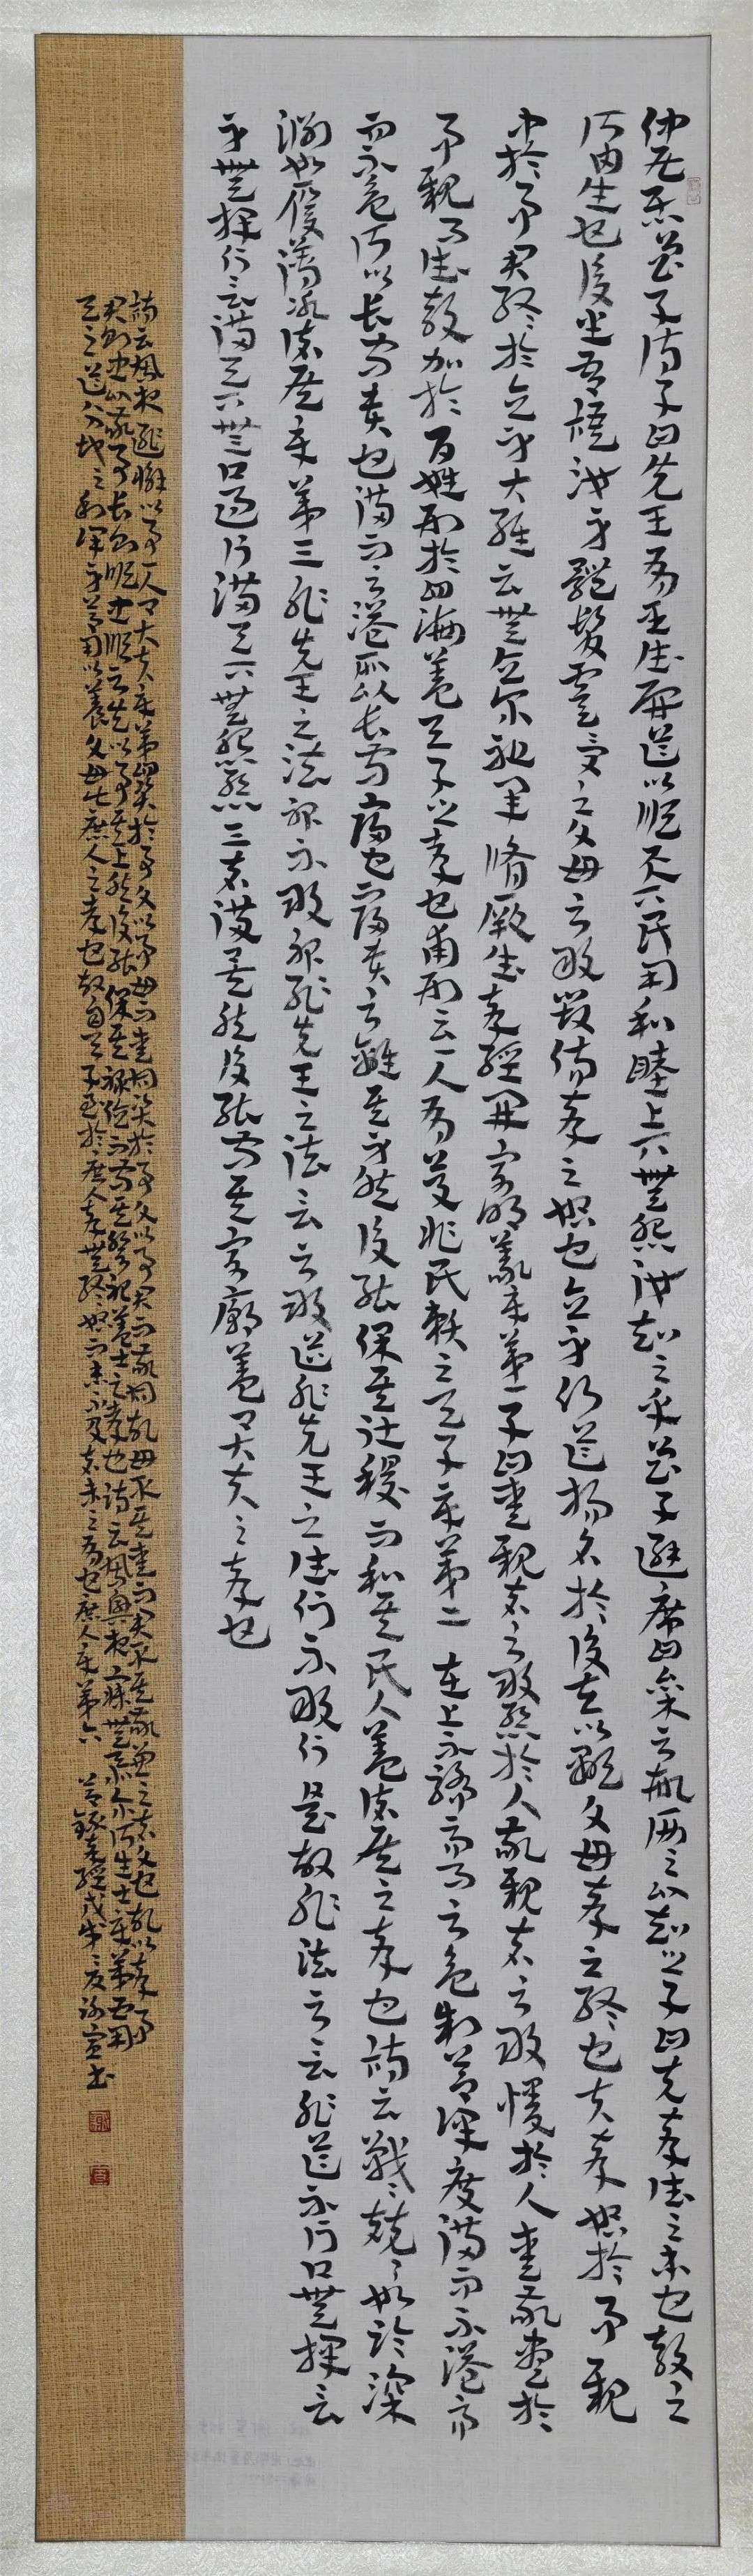 仲尼居曾子侍子曰先王有至德要道以順天下民用和睦上下無怨汝知之乎曾子避席曰參不敏何足以知之子曰夫孝德之本也教之
所由生也復坐吾語汝身體髮膚受之父母不敢毀傷孝之始也立身行道揚名於後世以顯父母孝之終也夫孝始於事親
中於事君終於立身大雅云無念爾祖聿脩厥德孝經開宗明義章第一子曰愛親者不敢惡於人敬親者不敢慢於人愛敬盡於
事親而德教加於百姓刑於四海蓋天子之孝也甫刑云一人有慶兆民賴之天子章第二 在上不驕高而不危制節謹度滿而不溢高
而不危所以長守貴也滿而不溢所以長守富也富貴不離其身然後能保其社稷而和其民人蓋諸侯之孝也詩云戰戰兢兢如臨深
淵如履薄冰諸侯章第三非先王之法服不敢服非先王之法言不敢道非先王之德行不敢行是故非法不言非道不行口無擇言
身無擇行言滿天下無口過行滿天下無怨惡三者備矣然後能守其宗廟蓋卿大夫之孝也
詩云夙夜匪懈以事一人卿大夫章第四資於事父以事母而愛同資於事父以事君而敬同故母取其愛而君取其敬兼之者父也故以孝事
君則忠以敬事長則順忠順不失以事其上然後能保其祿位而守其祭祀蓋士之孝也詩云夙興夜寐無忝爾所生士章第五用
天之道分地之利謹身節用以養父母此庶人之孝也故自天子至於庶人孝無終始而患不及者未之有也庶人章第六 節錄孝經戊戌之夏謝宣書